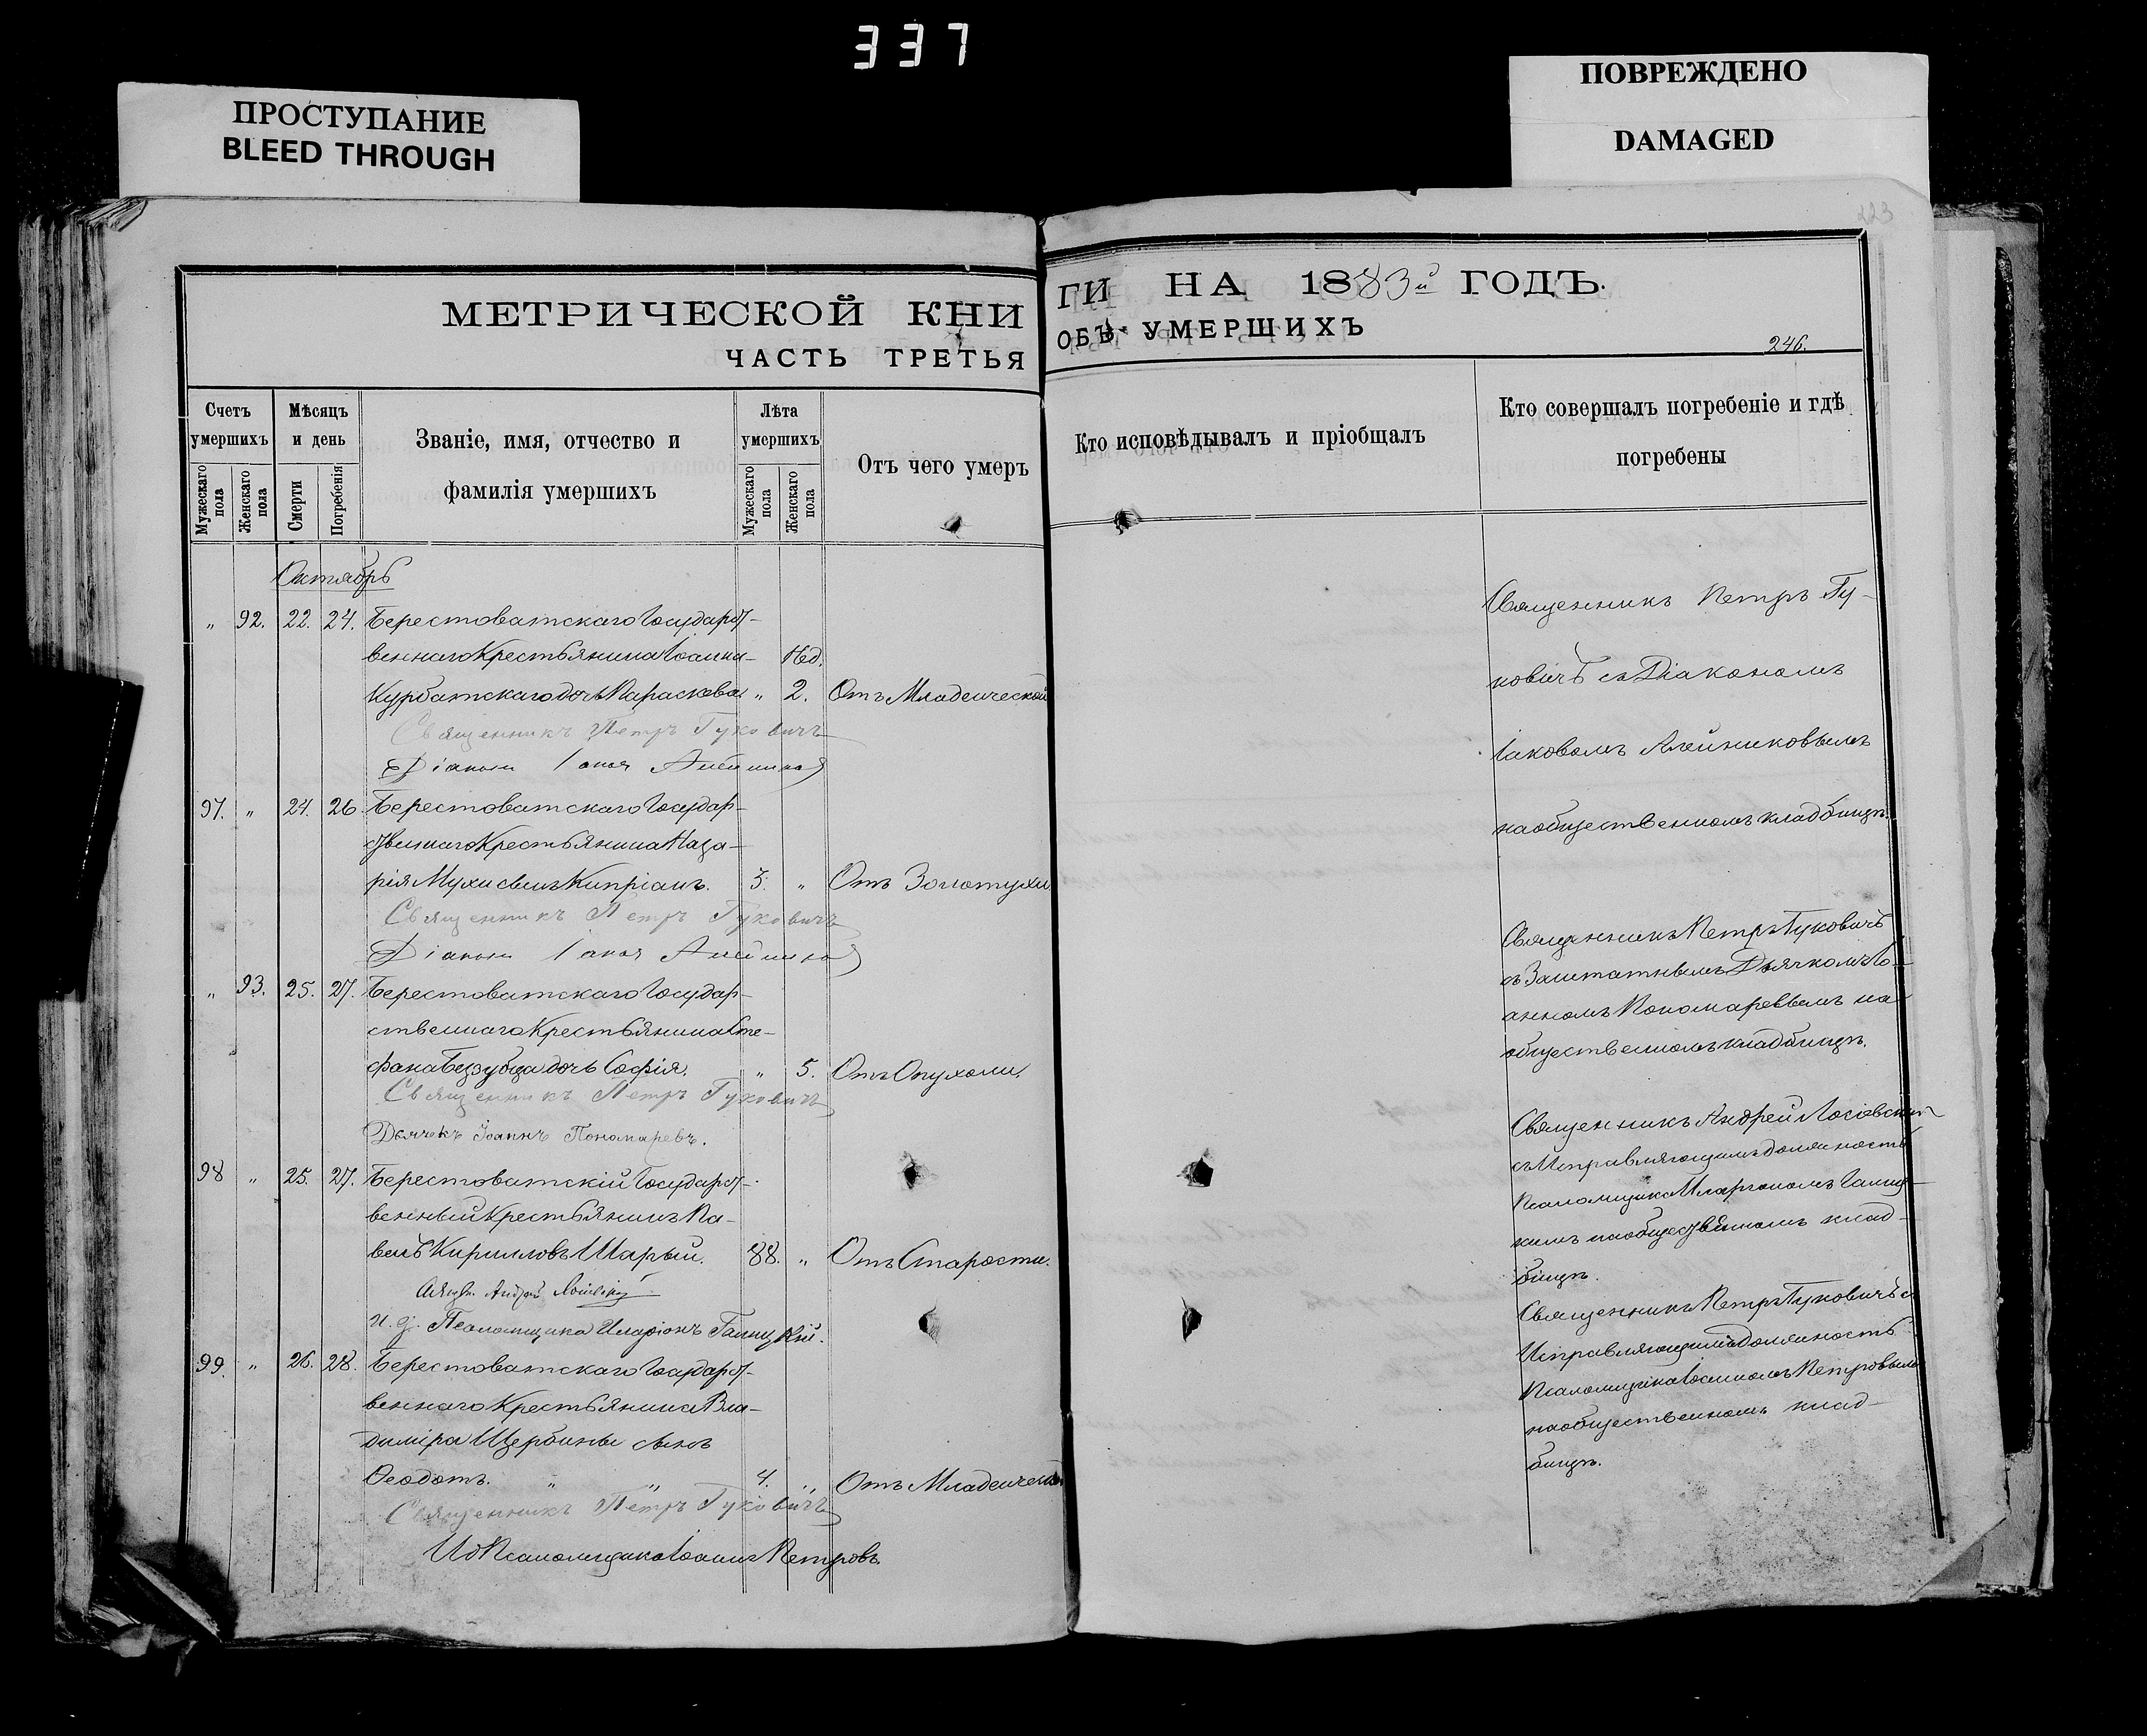 337
ПРОСТУПАНИЕ
BLEED THROUGH
ПОВРЕЖДЕНО
DAMAGED
223
МЕТРИЧЕСКОЙ КНИ
ЧАСТЬ ТРЕТЬЯ
Счетъ умершихъ
Мужескаго пола
Женскаго пола
Мѣсяцъ и день
Смерти
Погребенія
Званіе, имя, отчество и
фамилія умершихъ
Лѣта умершихъ
Мужескаго пола
Женскаго пола
Отъ чего умеръ
Октябрь
„ 92. 22. 24. Берестоватскаго Государст-
веннаго Крестьянина Іоанна Нед.
Курбатскаго дочь Параскева „ 2. Отъ Младенческой
Священникъ Петръ Гуковичъ
Діаконъ Іаковъ Алейниковъ
97. „ 24. 26. Берестоватскаго Государ-
ственнаго Крестьянина Наза-
рія Мухи сынъ Кипріанъ. 3. „ Отъ Золотухи
Священникъ Петръ Гуковичъ
Діаконъ Іаковъ Алейниковъ
„ 93. 25. 27. Берестоватскаго Государ-
ственнаго Крестьянина Сте-
фана Беззубца дочь Софія. „ 5. Отъ Опухоли.
Священникъ Петръ Гуковичъ
Дьячекъ Іоаннъ Пономаревъ.
98 „ 25. 27. Берестоватскій Государст-
венный Крестьянинъ Па-
велъ Кирилловъ Шарый. 88. „ Отъ Старости.
Андрей
И. д. Псаломщика Иларіонъ
99. „ 26. 28. Берестоватскаго Государст-
веннаго Крестьянина Вла-
диміра Щербины сынъ
Ѳеодотъ. „ „ 4. „ Отъ Младенческой
Священникъ Петръ Гуковичъ
ИД Псаломщика Іоаннъ Петровъ.
ГИ НА 1883й ГОДЪ.
ОБЪ УМЕРШИХЪ
246.
Кто исповѣдывалъ и пріобщалъ
Кто совершалъ погребеніе и гдѣ
погребены
Священникъ Петръ Гу-
ковичъ съ Діакономъ
Іаковомъ Алейниковымъ
на общественномъ кладбищѣ.
Священникъ Петръ Гуковичъ
съ Заштатнымъ Дьячкомъ Іо-
анномъ Пономаревымъ на
общественномъ кладбищѣ.
Священникъ Андрей
съ Исправляющимъ должность
Псаломщика Иларіономъ
кимъ на общественномъ клад-
бищѣ.
Священникъ Петръ Гуковичъ съ
Исправляющимъ должность
Псаломщика Іоанномъ Петровымъ
на общественномъ клад-
бищѣ.